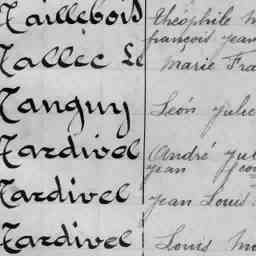 Taillebois Théophile
françois jean
Tallec Le Marie Fra
Tanguy Léon Julie
Tardivel André Jul
jean
Tardivel Jean Louis
Tardivel Louis Ma